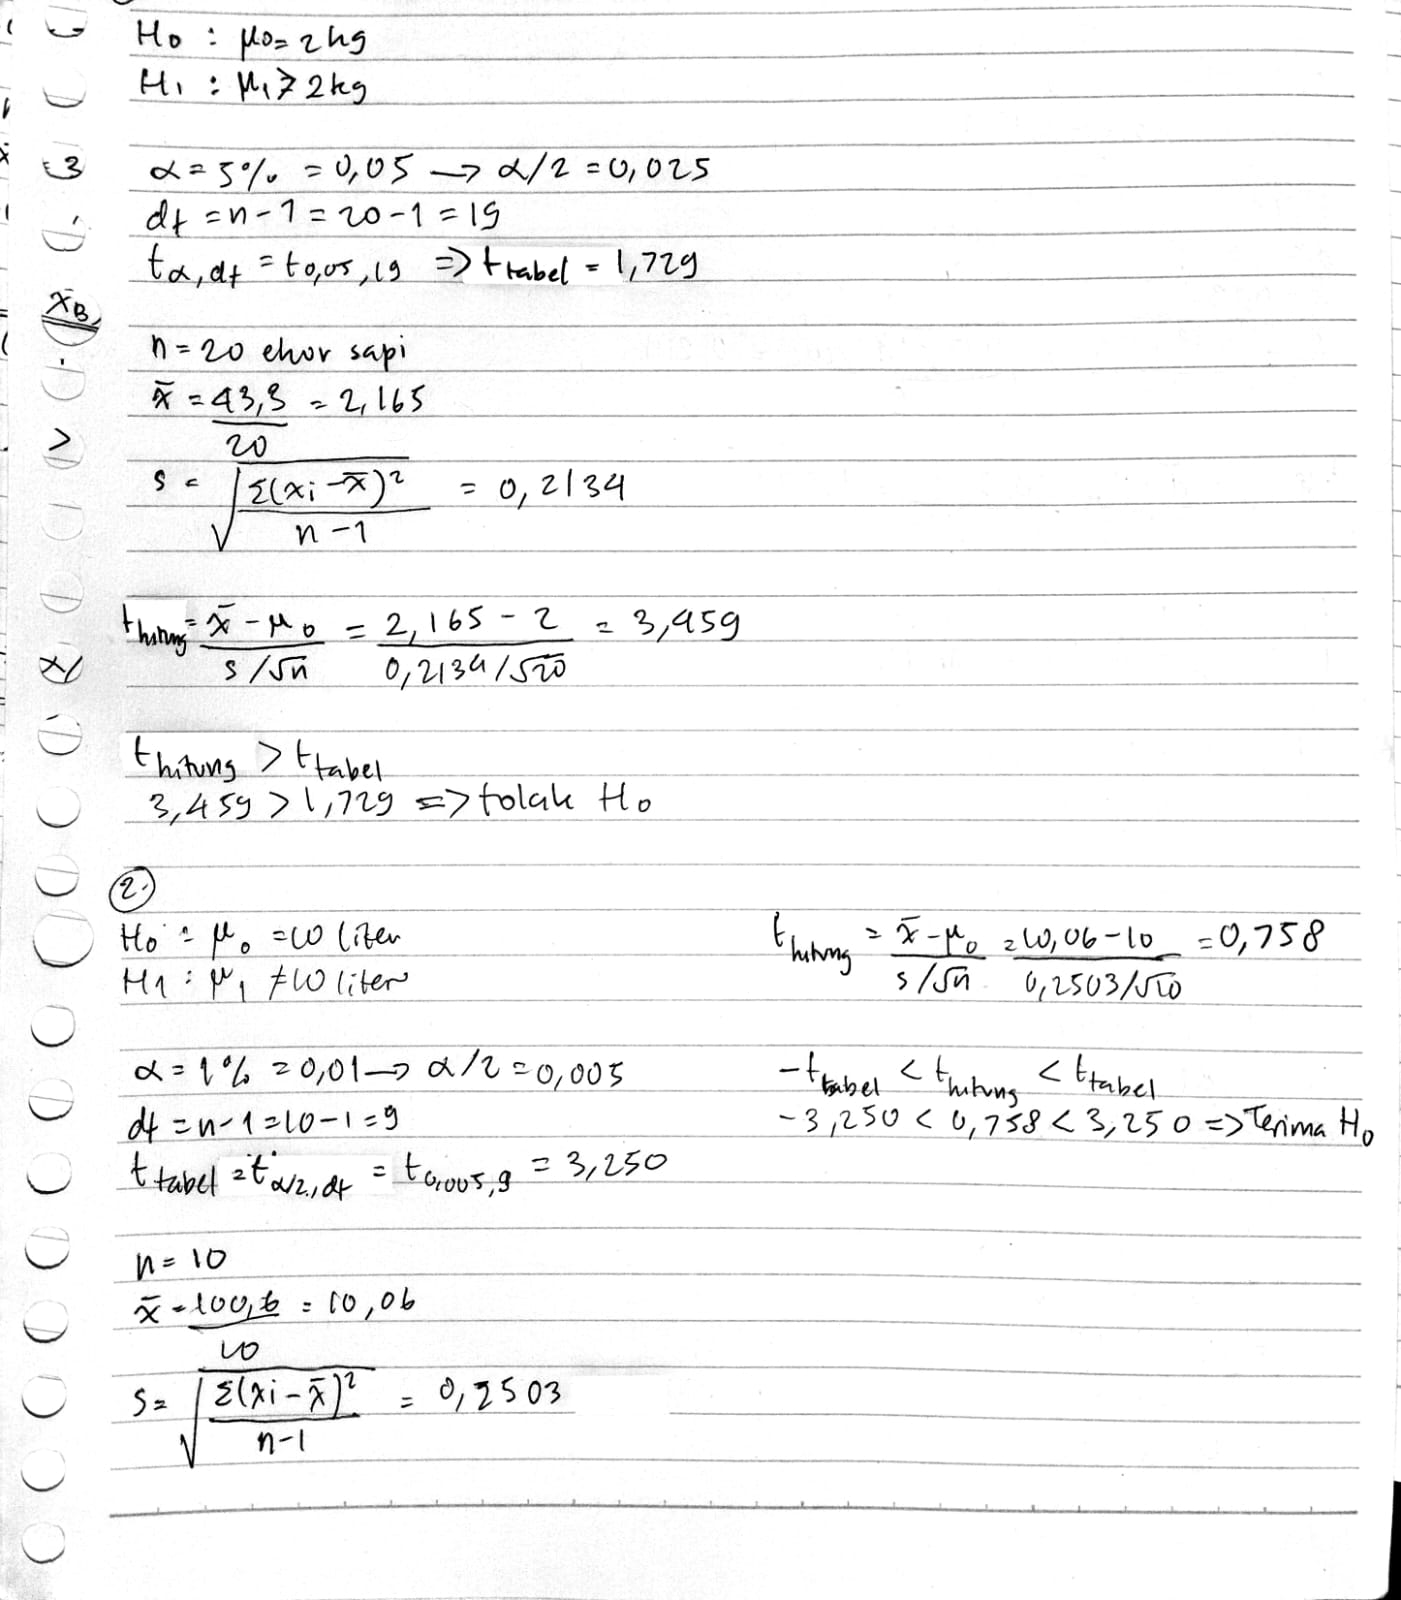 H0 : μ0 = 2 kg
H1 : μ1 ≥ 2 kg
α = 5% = 0,05 → α/2 = 0,025
df = n - 1 = 20 - 1 = 19
tα,df = t0,05,19 => t tabel = 1,729
n = 20 ekor sapi
x̄ = 43,3/20 = 2,165
s = √(Σ(xi - x̄)²/(n - 1)) = 0,2134
t hitung = (x̄ - μ0)/(s/√n) = (2,165 - 2)/(0,2134/√20) = 3,459
t hitung > t tabel
3,459 > 1,729 => tolak H0
2.
H0 : μ0 = 10 liter
H1 : μ1 ≠ 10 liter
α = 1% = 0,01 → α/2 = 0,005
df = n - 1 = 10 - 1 = 9
t tabel = tα/2,df = t0,005,9 = 3,250
n = 10
x̄ = 100,6/10 = 10,06
s = √(Σ(xi - x̄)²/(n - 1)) = 0,2503
t hitung = (x̄ - μ0)/(s/√n) = (10,06 - 10)/(0,2503/√10) = 0,758
-t tabel < t hitung < t tabel
-3,250 < 0,758 < 3,250 => Terima H0
3
x̄B